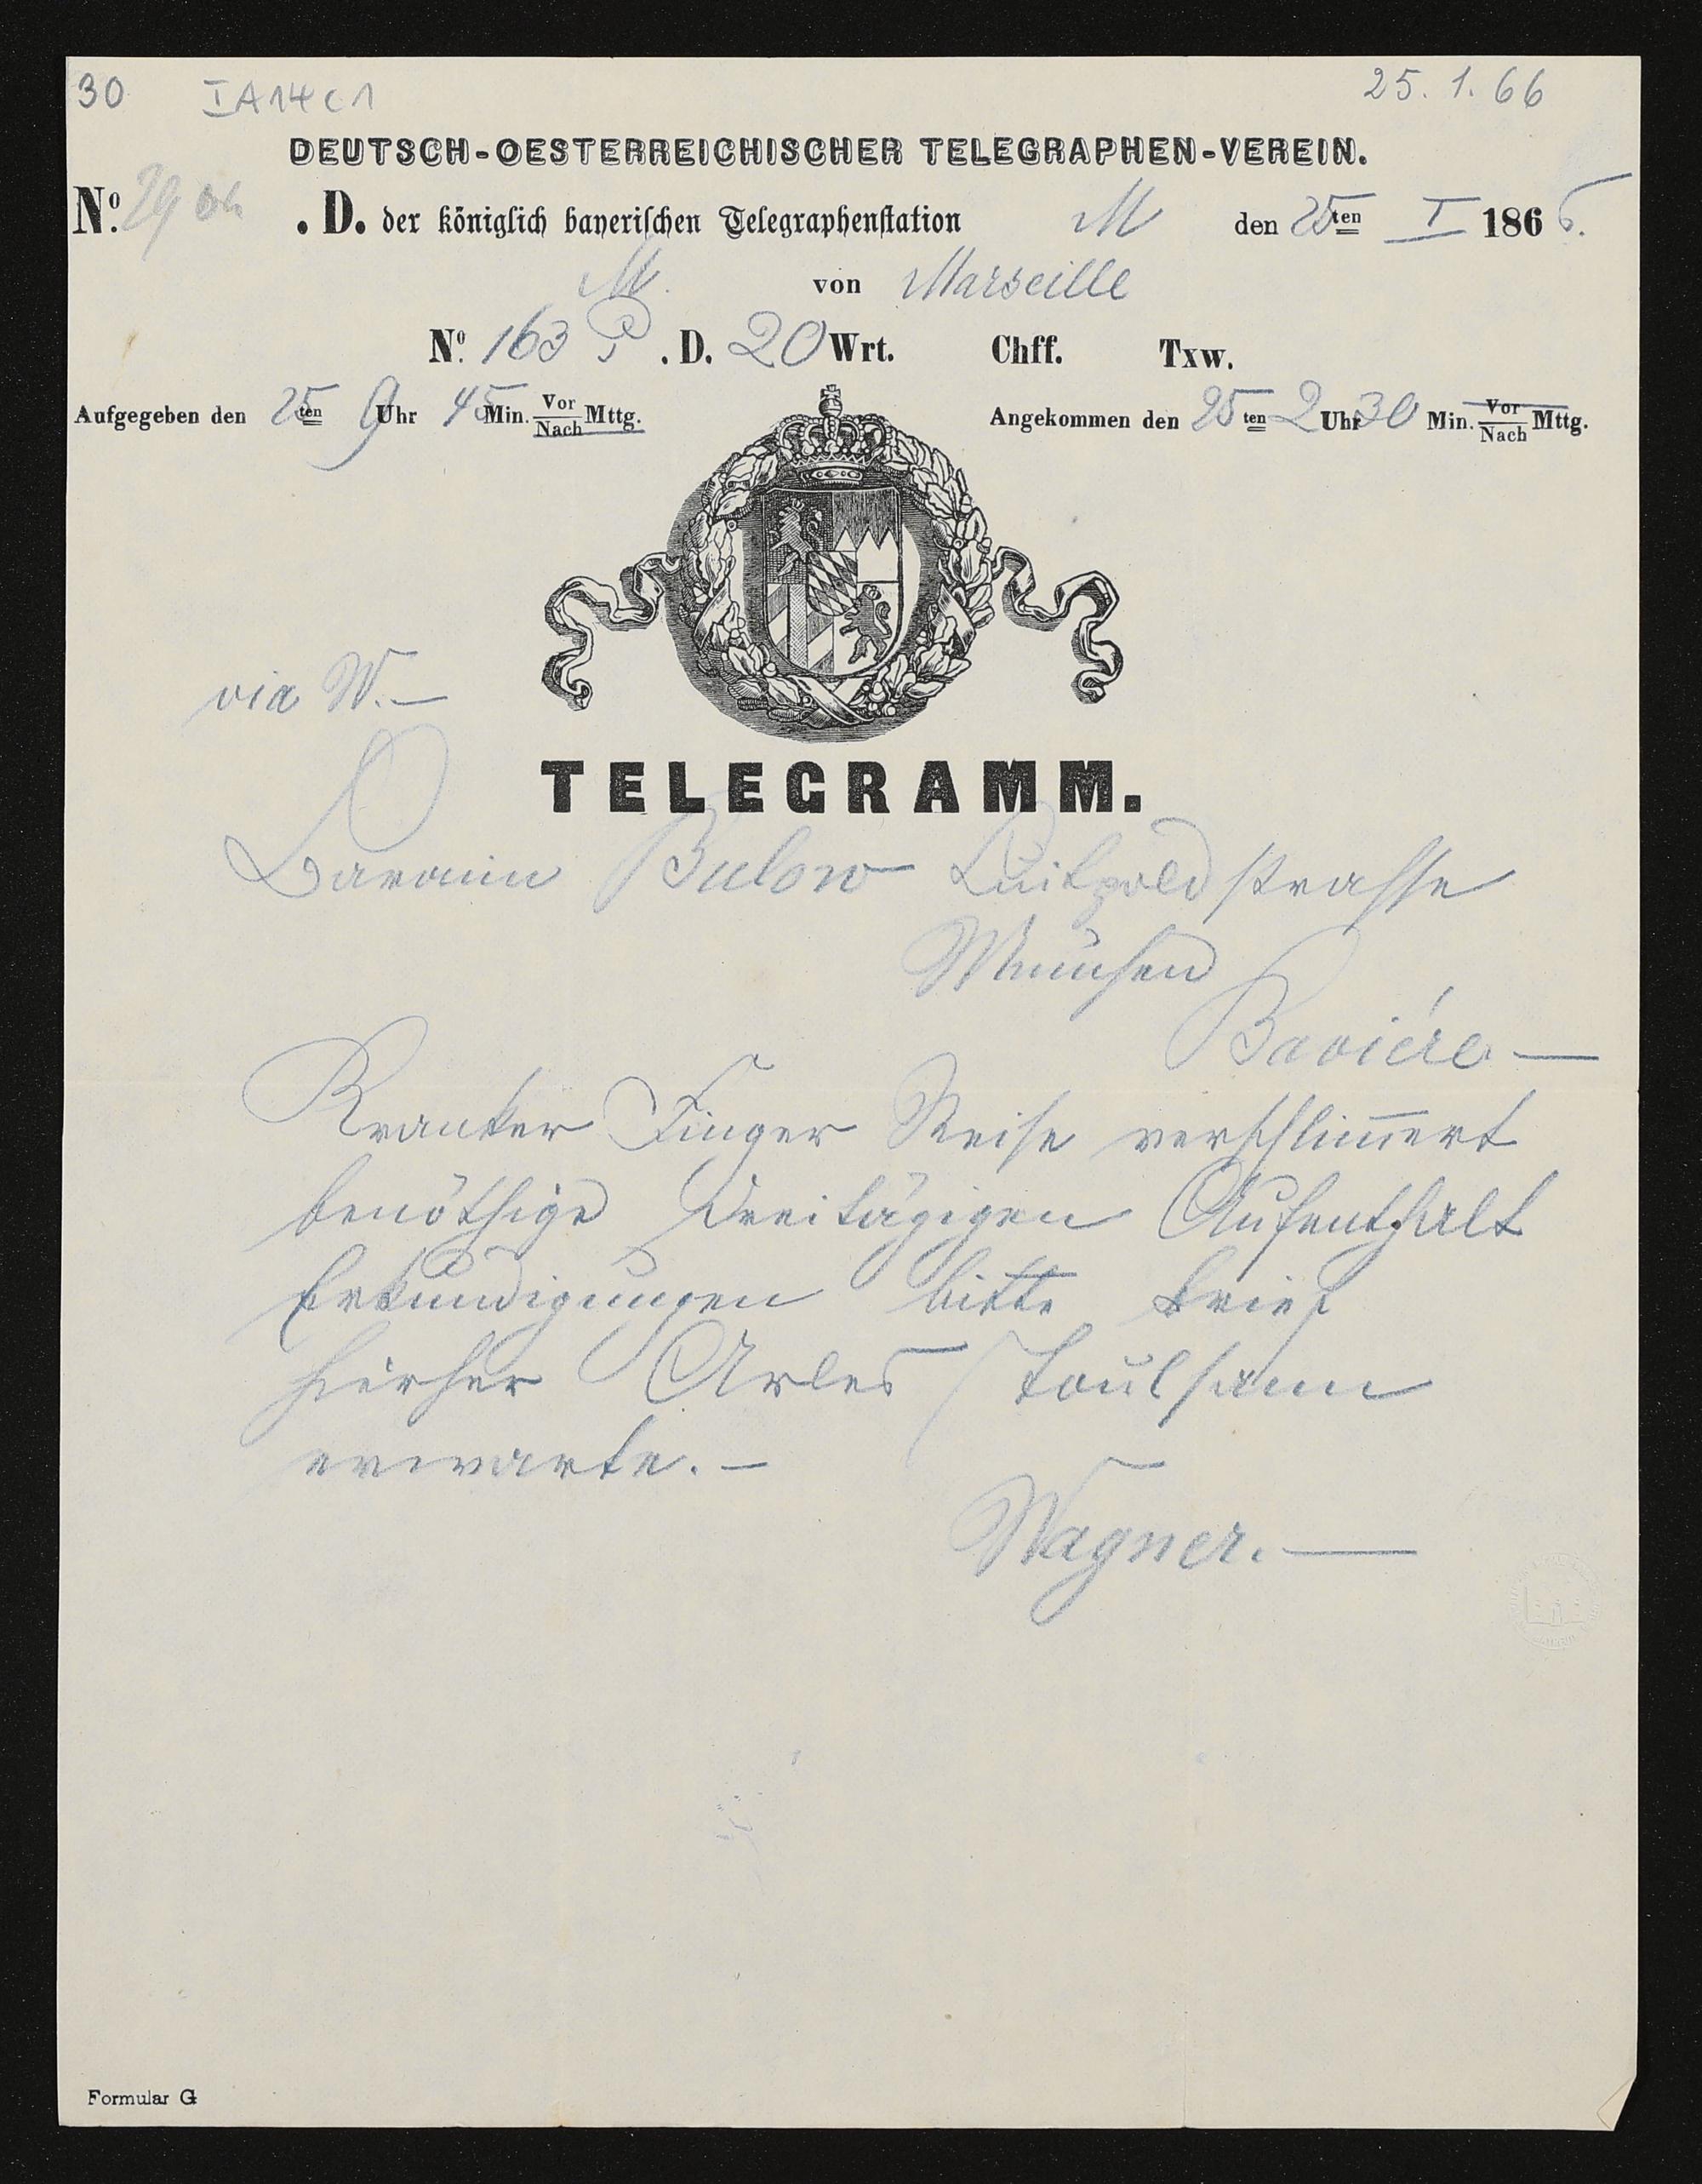 30 IA14c1 25. 1. 66
DEUTSCH-OESTERREICHISCHER TELEGRAPHEN-VEREIN.
No. . D. der königlich bayerischen Telegraphenstation M den 25ten I 1866.
M. von Marseille
No. 163 P . D. 20 Wrt. Chff. Txw.
Aufgegeben den 25ten 9 Uhr 45 Min. Vor Nach Mttg. Angekommen den 25ten 2 Uhr 30 Min. Vor Nach Mttg.
via W.—
TELEGRAMM.
Baronin Bulow Luitpoldstrasse
München
Baviére—
Kranker Finger Reise verschlim̅ert
benöthige dreitägigen Aufenthalt
Erkundigungen bitte brief
hierher Arles
erwarte.—
Wagner.—
Formular G